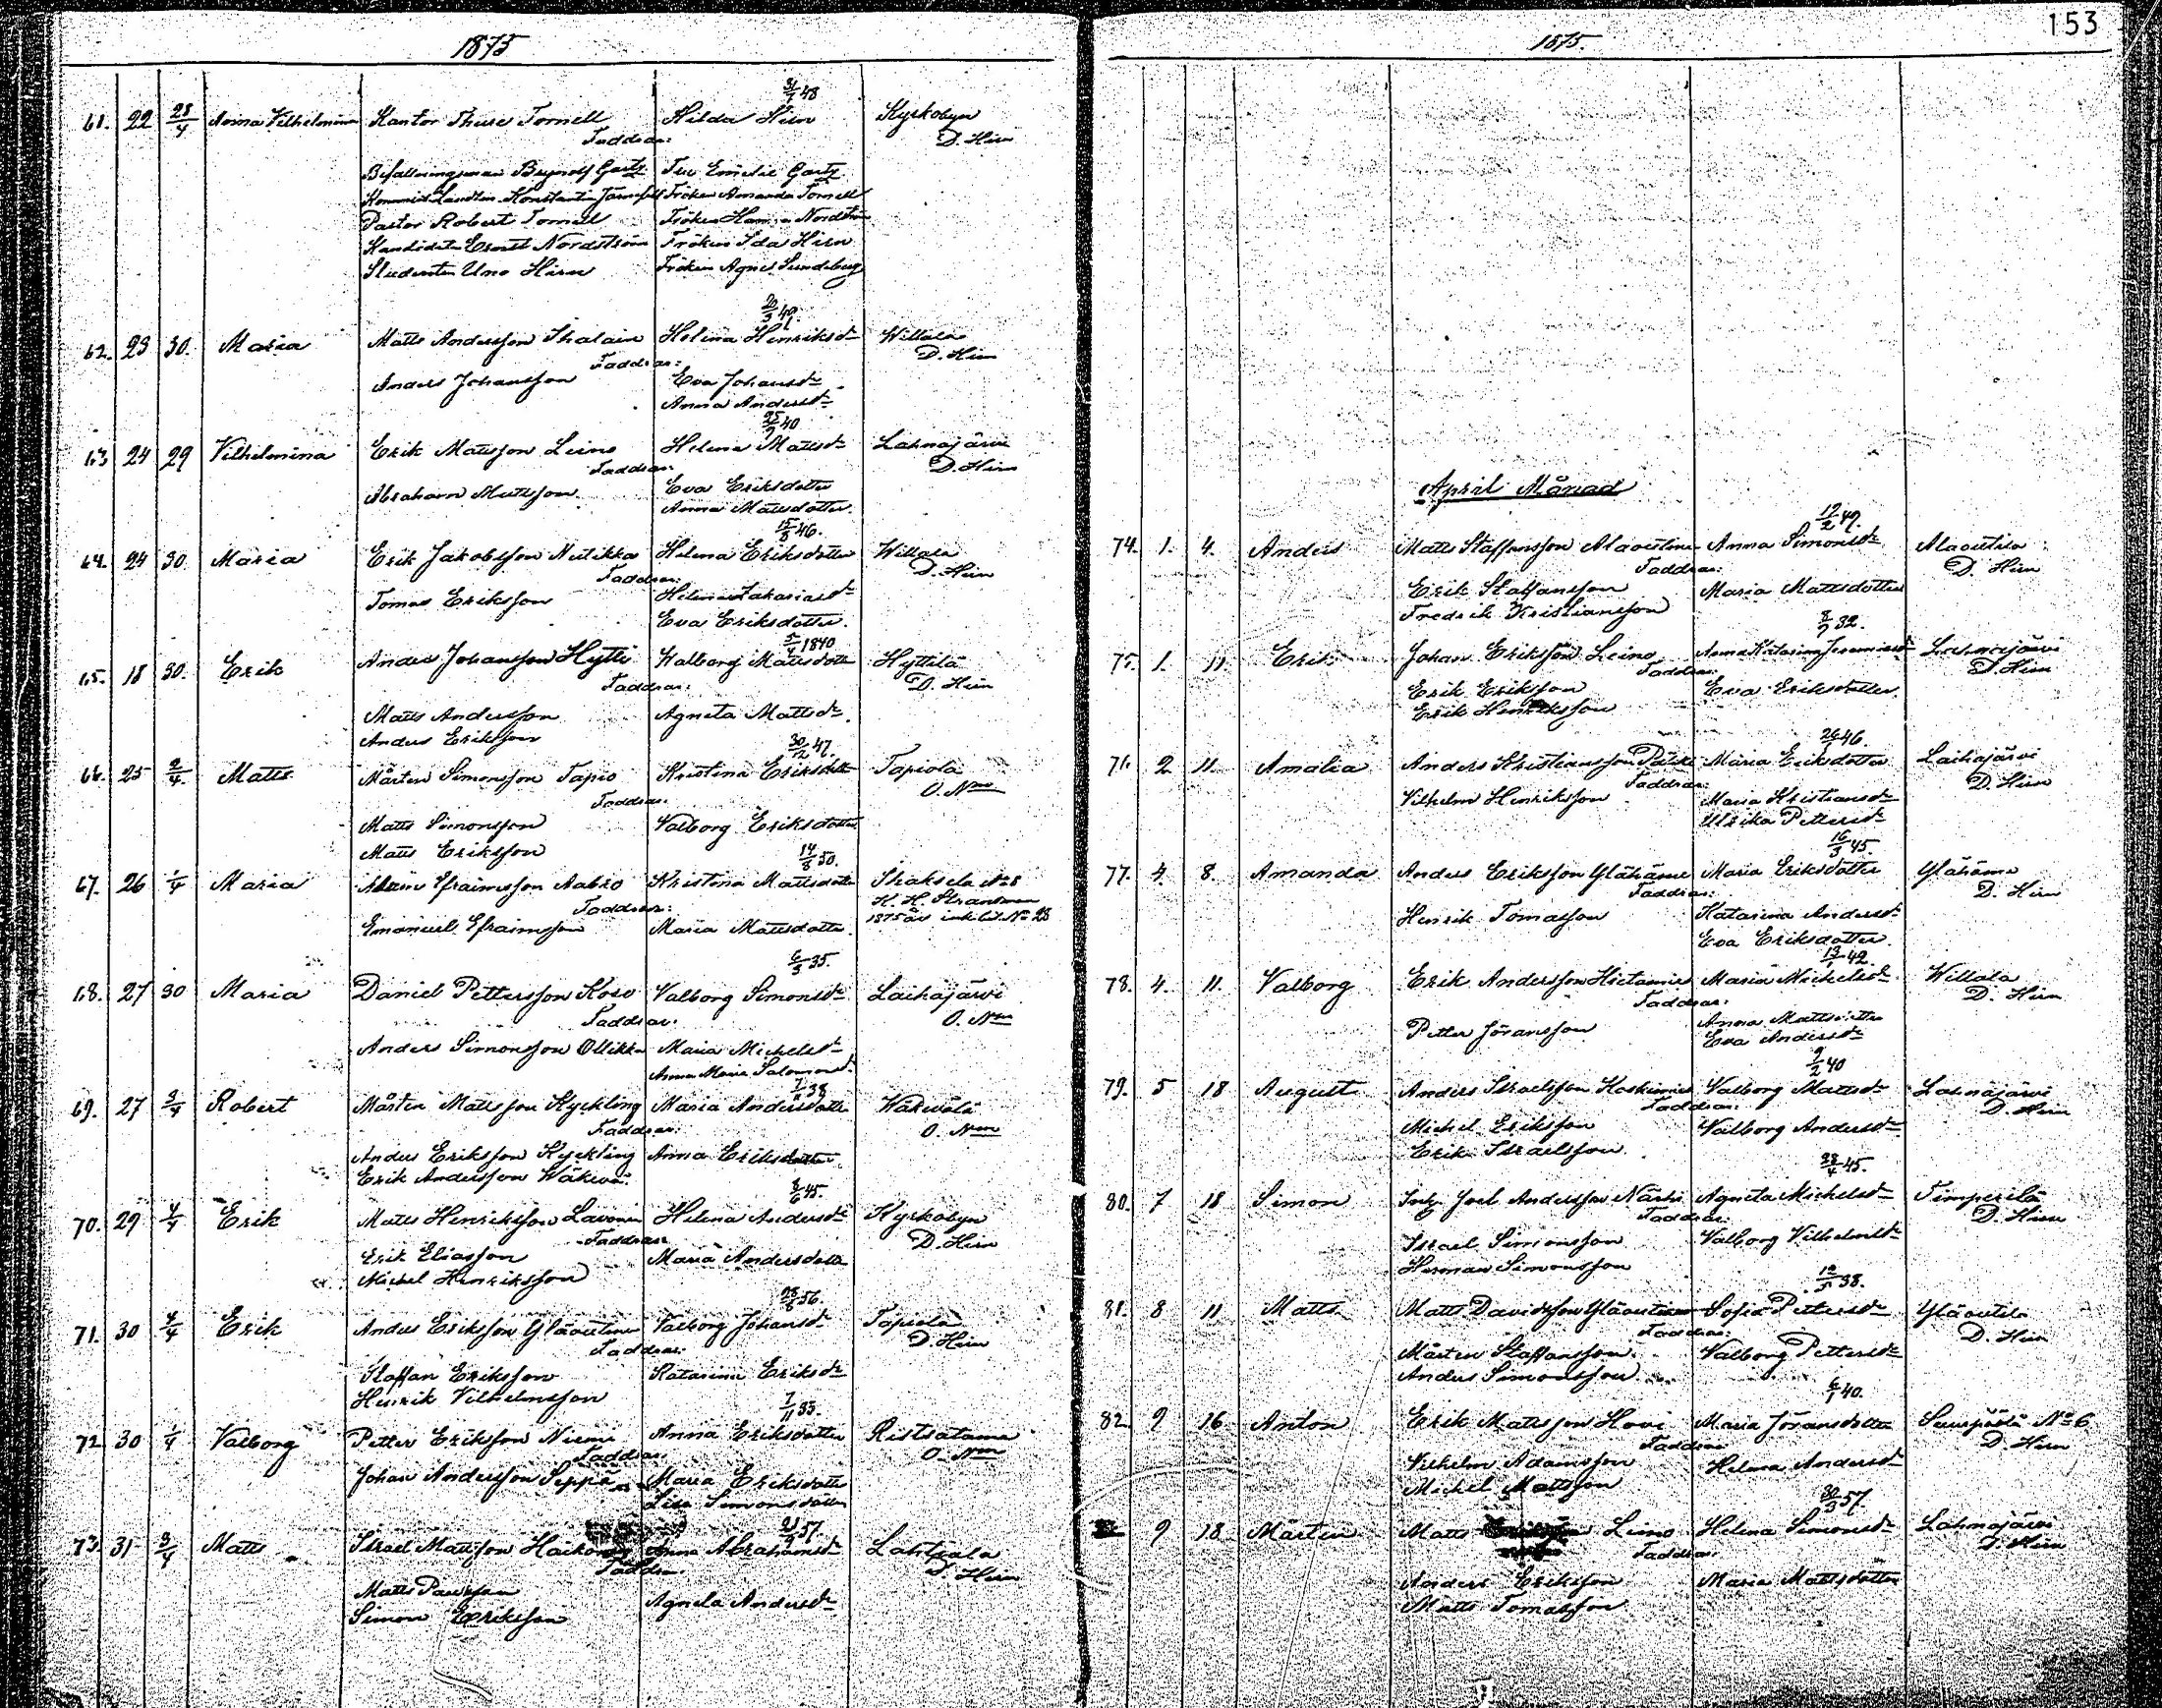 1875
61. 22 28/4 Anna Vilhelmina Kantor Thure Tornell Hilda Hirn 31/7 48 Kyrkobyn
Faddrar: D. Hirn
Befallningsman Brynolf Gartz Fru Emelie Gartz
Konstantin Fröken Amanda Tornell
Pastor Robert Tornell Fröken Nordström
Kandidaten Ernst Nordström Fröken Ida Hirn
Studenten Uno Hirn Fröken Agnes Sundeberg
62. 23 30. Maria Matts Andersson Ihalain Helena Henriksdr Willala
Faddrar: D. Hirn
Anders Johansson Eva Johansdr
Anna Andersdr
25/7 40
63 24 29 Vilhelmina Erik Mattsson Leino Helena Mattsdr Lahnajärvi
Faddrar: D. Hirn
Abraham Mattsson Eva Eriksdotter
Anna Mattsdotter.
15/8 46.
64. 24 30 Maria Erik Jakobsson Nutikka Helena Eriksdotter Willala
Faddrar: D. Hirn
Tomas Eriksson Helena Zakariasdr
Eva Eriksdotter.
5/4 1840
65. 18 30. Erik Anders Johansson Hytti Walborg Mattsdotter Hyttilä
Faddrar: D. Hirn
Matts Andersson Agneta Mattsdr.
Anders Eriksson
30/12 47.
66. 25 2/4 Matts Mårten Simonsson Tapio Kristina Eriksdotter Tapiola
Faddrar: O. Nm
Matts Simonsson Valborg Eriksdotter
Matts Eriksson
14/8 50.
67. 26 1/4 Maria Efraimsson Aabro Kristina Mattsdotter
Faddrar:
Emanuel Efraimsson Maria Mattsdotter. 1875 års
6/3 35.
68. 27 30 Maria Daniel Pettersson Koso Valborg Simonsdr Laihajärvi
Faddrar: O. Nm
Anders Simonsson Ollikka Maria Michelsdr
Anna Maria Salomonsdr
69. 27 3/4 Robert Mårten Mattsson Kyckling Maria Andersdotter Wäkevälä
Faddrar: O. Nm
Anders Eriksson Kyckling Anna Eriksdotter
Erik Andersson Wäkevä.
8/6 45.
70. 29 4/4 Erik Matts Henriksson Lavonen Helena Andersdr Kyrkobyn
Faddrar D. Hirn
Erik Eliasson Maria Andersdotter
Michel Henriksson
28/8 56.
71. 30 4/4 Erik Anders Eriksson Yläoutinen Valborg Johansdr Tapiola
Faddrar: D. Hirn
Staffan Eriksson Katarina Eriksdr
Henrik Vilhelmsson
7/11 33.
72 30 1/4 Valborg Petter Eriksson Niemi Anna Eriksdotter Ristsatama
Faddrar. O. Nm
Johan Andersson Seppä Maria Eriksdotter
Lisa Simonsdotter
73. 31 3/4 Matts Israel Mattsson Anna Abrahamsdr Lahtsala
Faddrar. D. Hirn
Matts Agneta Andersdr
Simon Eriksson
153
1875.
April Månad
12/2 49.
74. 1. 4. Anders Matts Staffansson Alaoutinen Anna Simonsdr Alaoutila
Faddrar: D. Hirn
Erik Staffansson Maria Mattsdotter
Fredrik Kristiansson
8/7 32.
75. 1. 11. Erik Johan Eriksson Leino Anna Katarina Jeremiasdr Lahnajärvi
Faddrar: D. Hirn
Erik Eriksson Eva Eriksdotter
Erik Henriksson
26/1 46.
2 11. Amalia Anders Kristiansson Maria Eriksdotter Laihajärvi
Faddrar: D. Hirn
Vilhelm Henriksson Maria Kristiansdr
Ulrika Pettersdr
16/3 45.
77. 4. 8. Amanda Anders Eriksson Ylähäme Maria Eriksdotter Ylähäme
Faddrar: D. Hirn
Henrik Tomasson Katarina Andersdr
Eva Eriksdotter.
78. 4. 11. Valborg Erik Andersson Hietaniemi Maria Michelsdr Willala
Faddrar: D. Hirn
Petter Jöransson Anna Mattsdotter
Eva Andersdr
9/2 40
79. 5 18 August Anders Israelsson Koskinies Valborg Mattsdr Lahnajärvi
Faddrar: D. Hirn
Michel Eriksson Valborg Andersdr
Erik Israelsson.
80. 7 18 Simon Joel Andersson Närhi Agneta Michelsdr Timperilä
Faddrar: D. Hirn
Israel Simonsson Valborg Vilhelmsdr
Herman Simonsson
81. 8 11 Matts Matts Davidsson Yläoutinen Sofia Pettersdr Yläoutila
Faddrar: D. Hirn
Mårten Staffansson. Valborg Pettersdr
Anders Simonsson
6/1 40.
82. 9 16 Anton Erik Mattsson Hovi Maria Jöransdotter No 6
Faddrar D. Hirn
Vilhelm Adamsson Helena Andersdr
Michel Mattsson
30/3 57.
9 18 Mårten Matts Leino Helena Simonsdr Lahnajärvi
Faddrar: D. Hirn
Anders Eriksson Maria Mattsdotter
Matts Tomasson